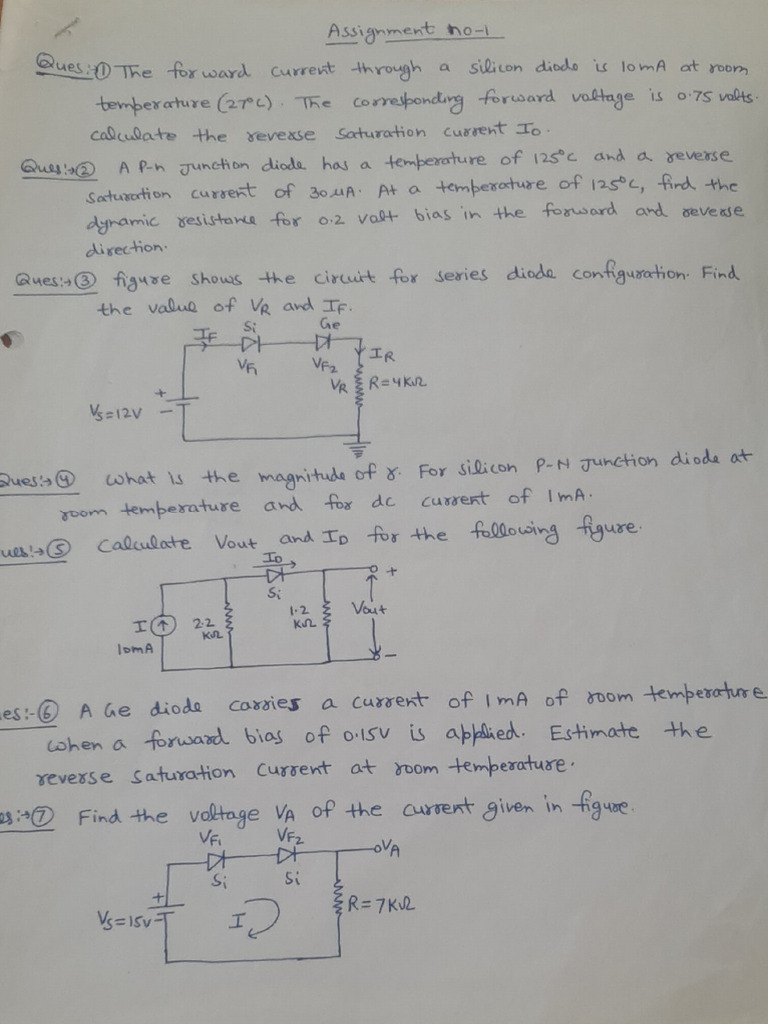 Assignment no-1
Ques:→① The forward current through a silicon diode is 10mA at room
temperature (27°C). The corresponding forward voltage is 0.75 volts.
calculate the reverse saturation current Io.
Ques:→② A P-n Junction diode has a temperature of 125°C and a reverse
saturation current of 30μA. At a temperature of 125°C, find the
dynamic resistance for 0.2 volt bias in the forward and reverse
direction.
Ques:→③ figure shows the circuit for series diode configuration. Find
the value of VR and IF.
IF Si Ge
VF1 VF2 IR
VR R=4KΩ
+
Vs=12V −
Ques:→④ what is the magnitude of r. For silicon P-N Junction diode at
room temperature and for dc current of 1mA.
ues:→⑤ Calculate Vout and ID for the following figure.
ID
+
Si
I 2.2 KΩ 1.2 KΩ Vout
10mA
−
es:-⑥ A Ge diode carries a current of 1mA of room temperature
when a forward bias of 0.15V is applied. Estimate the
reverse saturation current at room temperature.
es:→⑦ Find the voltage VA of the current given in figure.
VF1 VF2
VA
Si Si
+
Vs=15V − I R=7KΩ